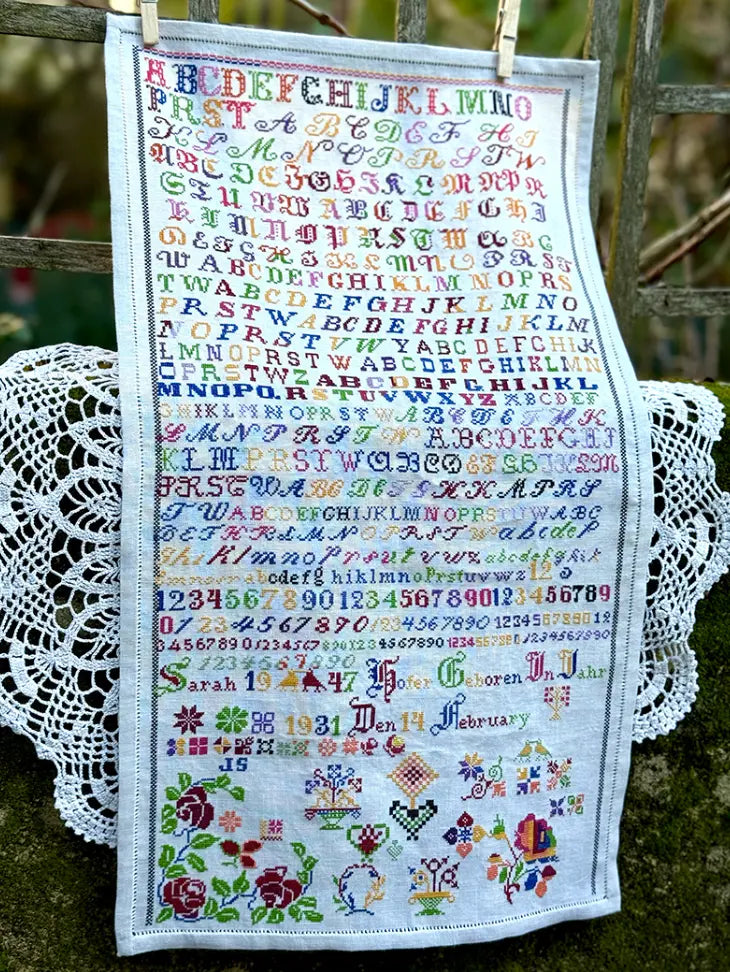 ABCDEFGHIJKLMNO
PRSTABCDEFHI
KLMNOPRSTW
ABCDEFGHIKLMNPR
STUVWABCDEFGHI
KLMNOPRSTWAB C
DEFSHIKLMNOPRST
WABCDEFGHIKLMNOPRS
TWABCDEFGHJKLMNO
PRSTWABCDEFGHIJKLM
NOPRSTVWYABCDEFGHIK
LMNOPRSTWABCDEFGHIKLMN
OPRSTWZABCDEFGHJKL
MNOPQRSTUVWXYZABCDEF
GHIKLMNOPRSTWABCDEFHK
LMNPRSTWABCDEFGHI
KLMPRSTWABCDEFGHIKLM
PRSTWABCDEFSHKMPRS
TWABCDEFGHIJKLMNOPRSTUWABC
DEFHKLMNOPRSTWabcdef
ghiklmnoprsutvwzabcdefghik
lmnoprabcdefghiklmnoprstuvwwz123
12345678901234567890123456789
0123456789012345678901234567890 12
34567890123456789012345678901234567890123456789 0
1234567890
Sarah 19 47 Hofer Geboren In Jahr
1931 Den 14 February
JS